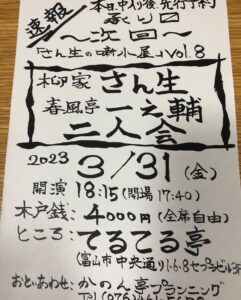 速報
本日中入り後、先行予約
あり〼
〜次回〜
「さん生の噺小屋」vol.8
柳家 さん生
春風亭 一之輔
二人会
2023 3/31(金)
開演 18:15 (開場 17:40)
木戸銭: 4000円 (全席自由)
ところ: てるてる亭
富山市中央通り1-6-8
おといあわせ: かのん亭プランニング
Tel (076)